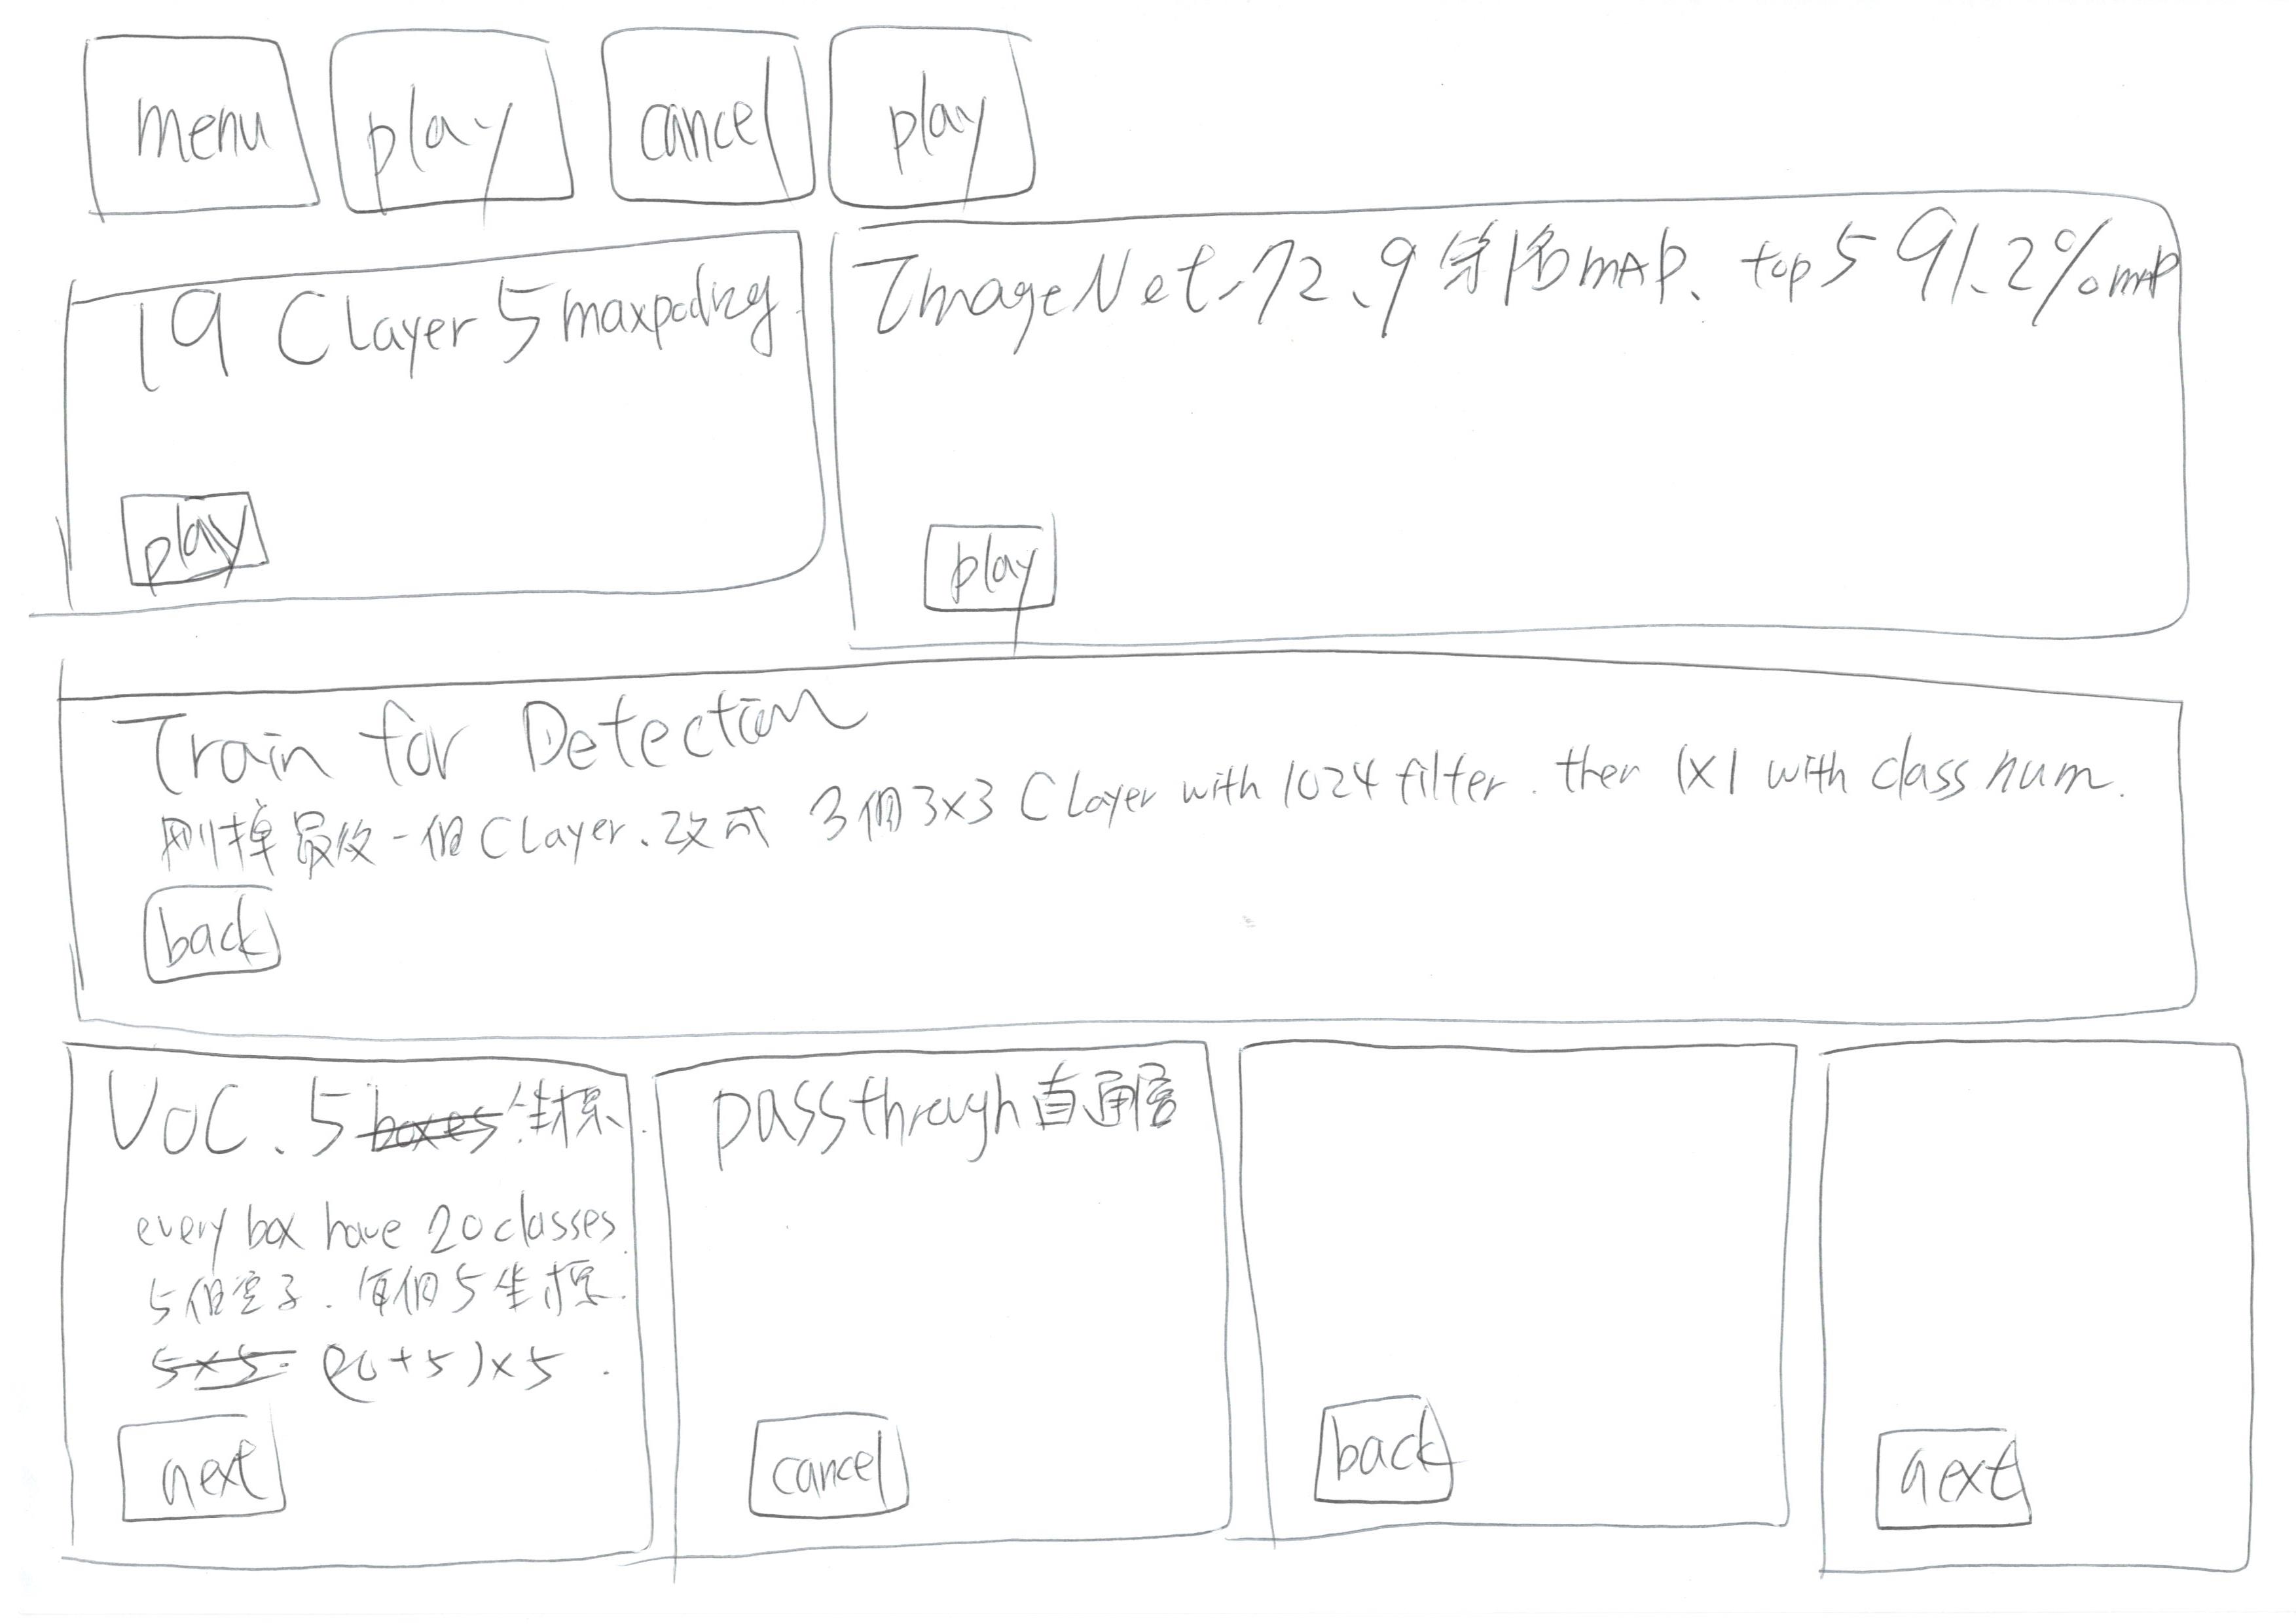 menu play cancel play
19 CLayer 5 maxpooling
ImageNet, 72.9 mAP、top 5 91.2% mAP
play
play
Train for Detection
刪掉最後一個CLayer、改成 3個3x3 CLayer with 1024 filter. then 1x1 with class num.
back
VOC、5 boxes 坐標.
passthrough直通層
every box have 20 classes.
5個盒子. 每個5坐標.
5x5= (20+5)x5.
next
cancel
back
next